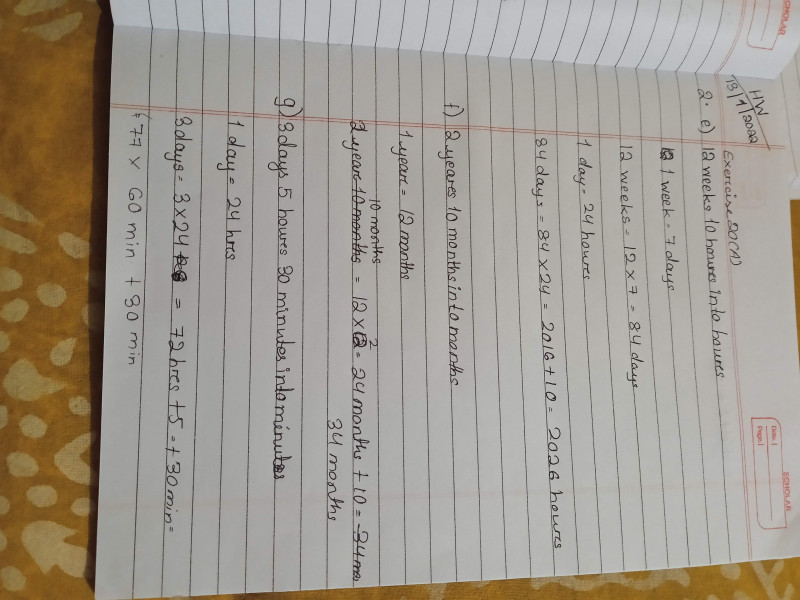 SCHOLAR
HW
13/1/2022
SCHOLAR
Date:
Page:
Exercise 20(A)
2. e) 12 weeks 10 houres into houres
1 week = 7 days
12 weeks = 12 x 7 = 84 days
1 day = 24 houres
84 days = 84 x 24 = 2016 + 10 = 2026 houres
f) 2 yeares 10 months into months
1 yeare = 12 months
10 months
2 yeares 10 months = 12 x 2 = 24 months + 10 = 34 mo
34 months
g) 3 days 5 houres 30 minutes into minutes
1 day = 24 hres
3 days = 3 x 24 = 72 hres + 5 = + 30 min =
77 x 60 min + 30 min